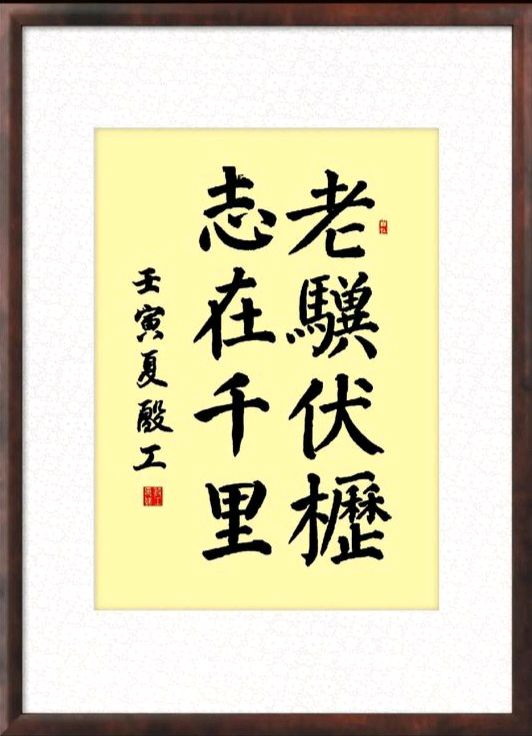 老驥伏櫪
志在千里
壬寅夏殷工